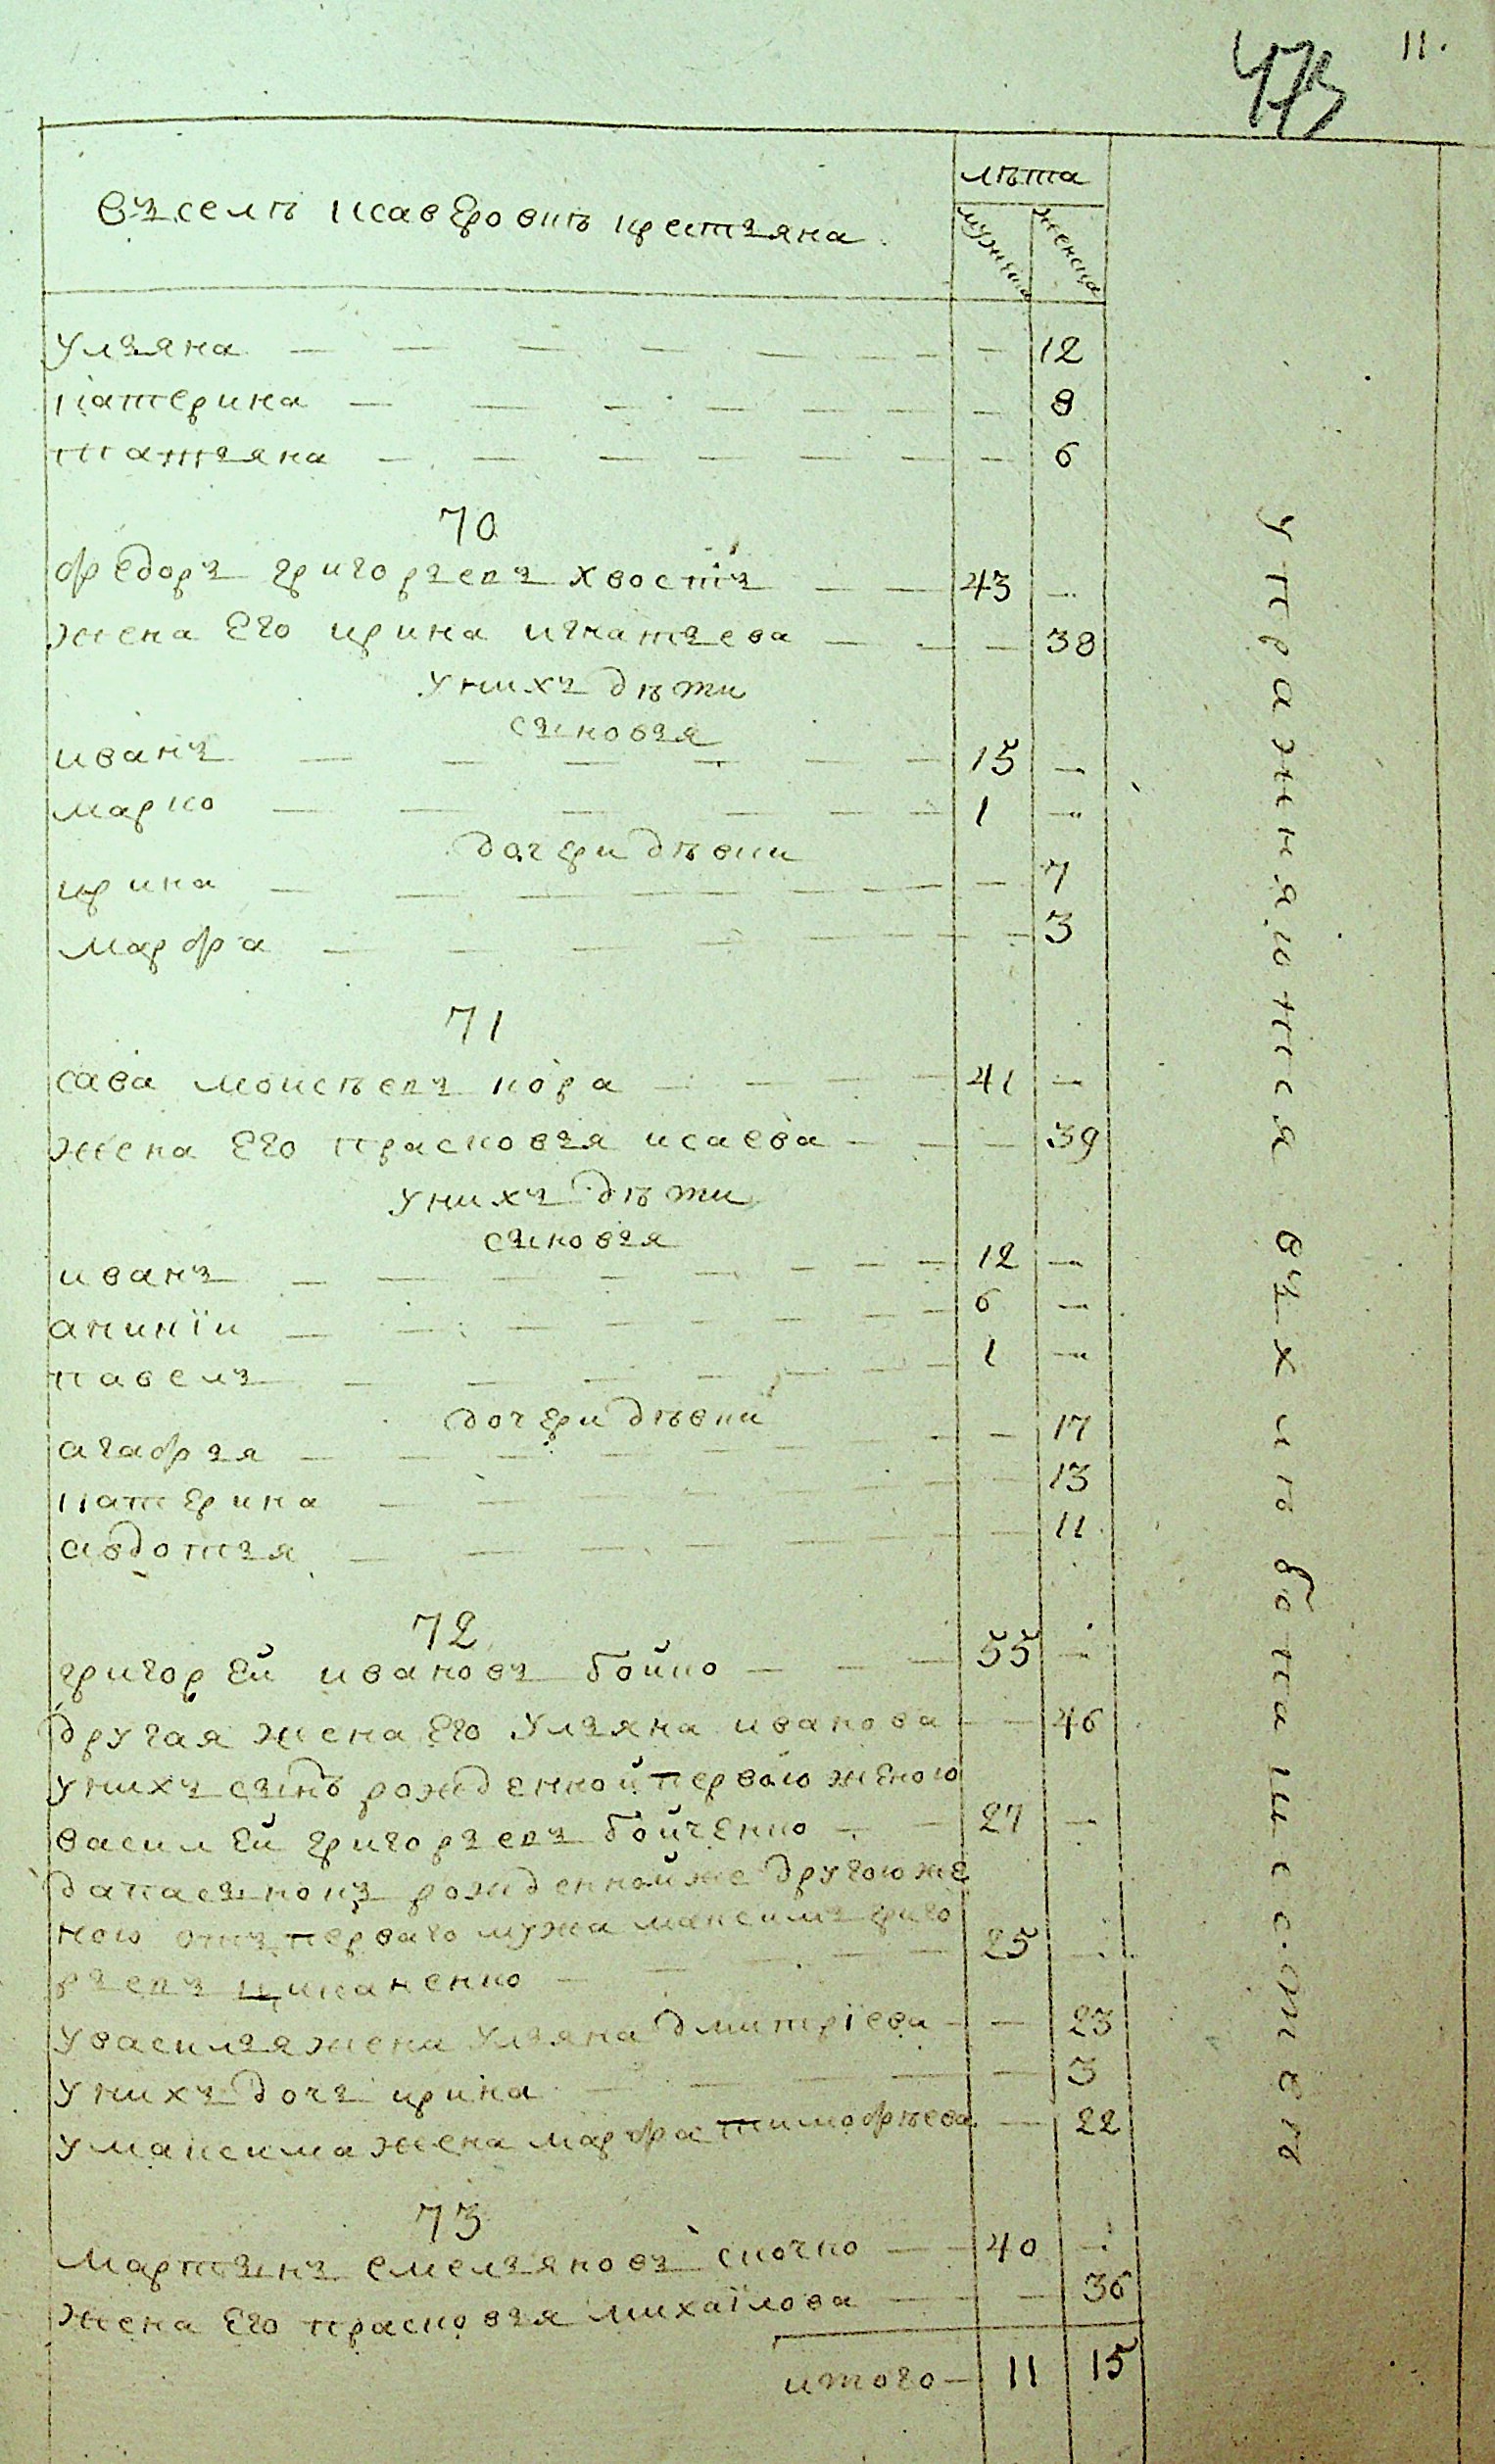 473 11.
въ селѣ исаеровкѣ крестьяна лѣта
мужчина женсца
ульяна — 12
катерина — 8
татьяна — 6
70
федоръ григорьевъ хвостъ — 43 —
жена Его ирина игнатьева — 38
у нихъ дѣти
сыновья
иванъ — 15 —
марко — 1 —
дочери дѣвки
ирина — 7
марфа — 3
71
сава моисѣевъ кора — 41 —
жена Его прасковья исаева — 39
у нихъ дѣти
сыновья
иванъ — 12 —
ананїи — 6 —
павелъ — 1 —
дочери дѣвки
агафья — 17
катерина — 13
авдотья — 11
72
григорЕй ивановъ бойко — 55 —
другая жена Его ульяна иванова — 46
у нихъ сынъ рожденной первою женою
василЕй григорьевъ бойченко — 27 —
да пасынокъ рожденной же другою же
ною отъ перваго мужа максимъ григо
рьевъ циканенко — 25 —
у василья жена ульяна дмитрїева — 23
у нихъ дочь ирина — 3
у максима жена марфа тимофѣева — 22
73
мартынъ емельяновъ скочко — 40 —
жена Его прасковья михаїлова — 36
итого — 11 15
упражняются въ хлѣбопашествѣ